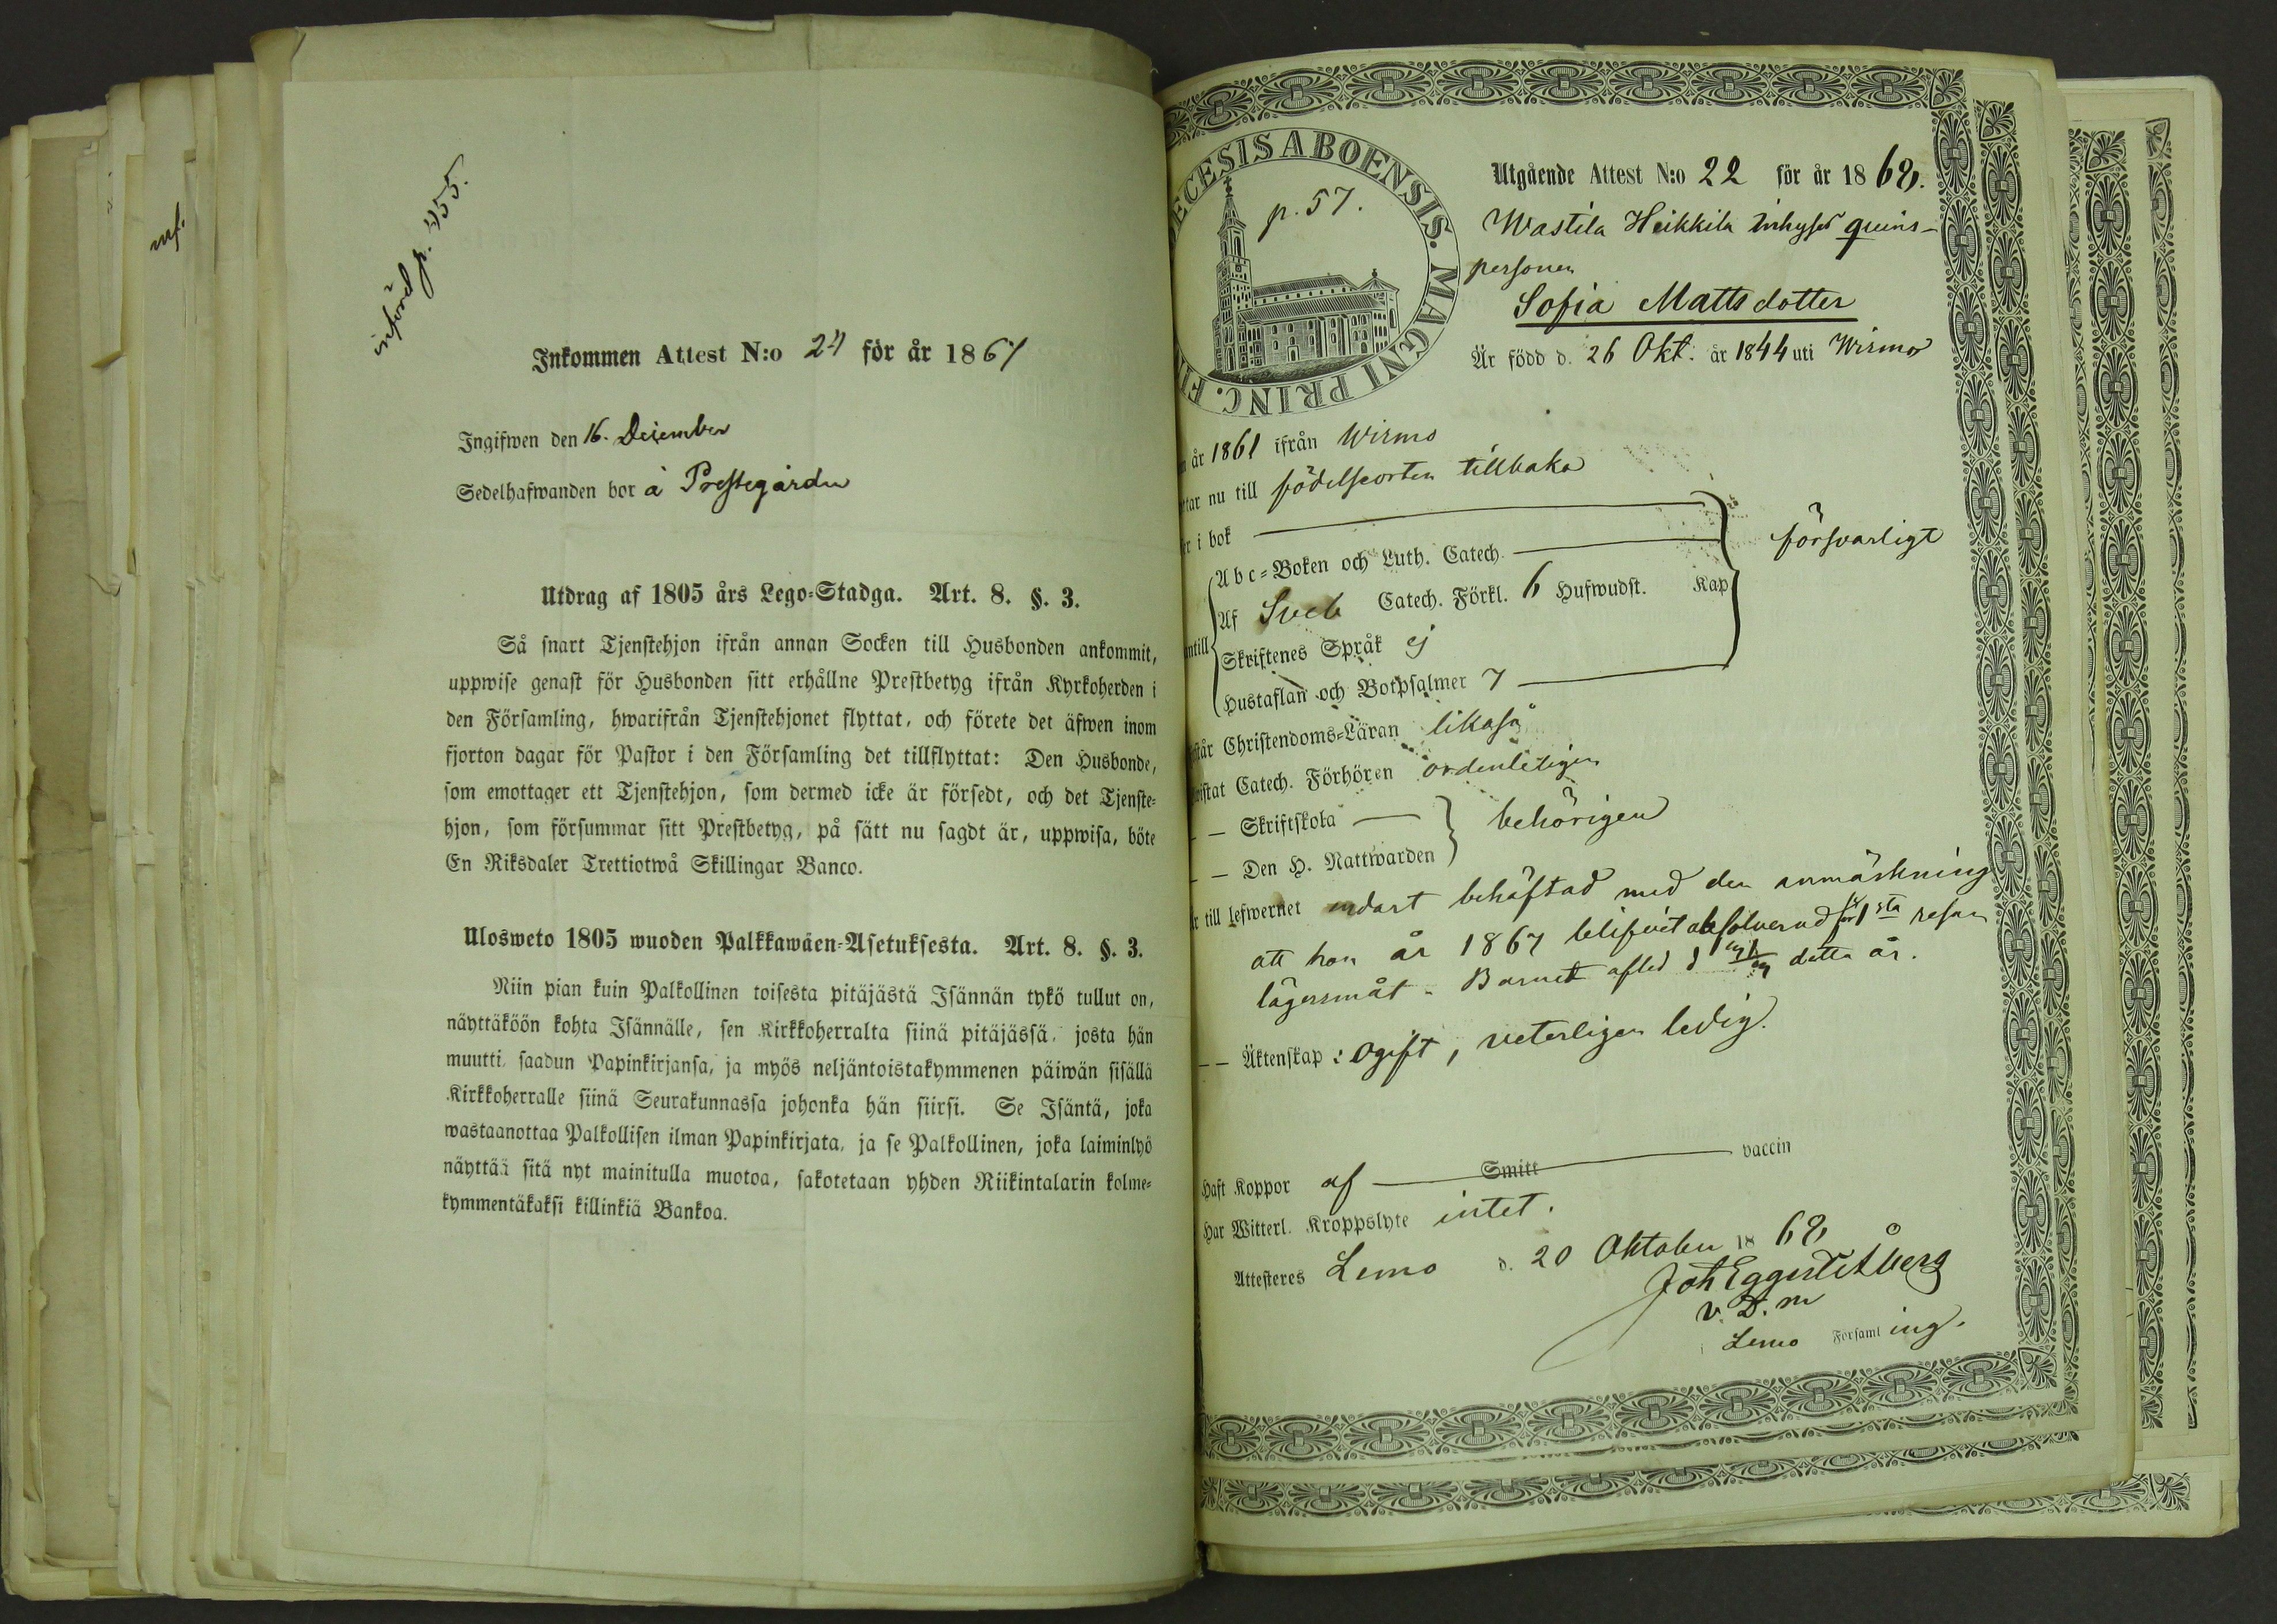 inf.
införd p. 455.
Inkommen Attest N:o 24 för år 1867
Ingifwen den 16. December
Sedelhafwanden bor å Prestegården
Utdrag af 1805 års Lego-Stadga. Art. 8. §. 3.
Så snart Tjenstehjon ifrån annan Socken till Husbonden ankommit,
uppwise genast för Husbonden sitt erhållne Prestbetyg ifrån Kyrkoherden i
den Församling, hwarifrån Tjenstehjonet flyttat, och förete det äfwen inom
fjorton dagar för Pastor i den Församling det tillflyttat: Den Husbonde,
som emottager ett Tjenstehjon, som dermed icke är försedt, och det Tjenste-
hjon, som försummar sitt Prestbetyg, på sätt nu sagdt är, uppwisa, böte
En Riksdaler Trettiotwå Skillingar Banco.
Ulosweto 1805 wuoden Palkkawäen-Asetuksesta. Art. 8. §. 3.
Niin pian kuin Palkollinen toisesta pitäjästä Isännän tykö tullut on,
näyttäköön kohta Isännälle, sen Kirkkoherralta siinä pitäjässä, josta hän
muutti, saadun Papinkirjansa, ja myös neljäntoistakymmenen päiwän sisällä
Kirkkoherralle siinä Seurakunnassa johonka hän siirsi. Se Isäntä, joka
wastaanottaa Palkollisen ilman Papinkirjata, ja se Palkollinen, joka laiminlyö
näyttää sitä nyt mainitulla muotoa, sakotetaan yhden Riikintalarin kolme-
kymmentäkaksi killinkiä Bankoa.
ECESIS ABOENSIS. MAGNI PRINC. FI
p. 57.
Utgående Attest N:o 22 för år 1868.
Wastila Heikkila inhyses quins-
personen
Sofia Mattsdotter
Är född d. 26 Okt. år 1844 uti Wirmo
år 1861 ifrån Wirmo
ttar nu till födelseorten tillbaka
r i bok
försvarligt
Abc-Boken och Luth. Catech.
Af Sveb Catech. Förkl. 6 Hufwudst. Kap
ntill
Skriftenes Språk ej
Hustaflan och Botpsalmer 7
står Christendoms-Läran likaså
wistat Catech. Förhören ordentligen
— — Skriftskola —
behörigen
— — Den H. Nattwarden
r till Lefwernet endast behäftad med den anmärkning
att hon år 1867 blifvit absolverad för 1sta resan
lägersmåt. Barnet afled d detta år.
— — Äktenskap: ogift, veterligen ledig.
Haft Koppor af Smitt vaccin
Har Witterl. Kroppslyte intet.
Attesteres Lemo d. 20 Oktober 1868
Joh Eggert Åberg
v. D. m
Lemo Församling.